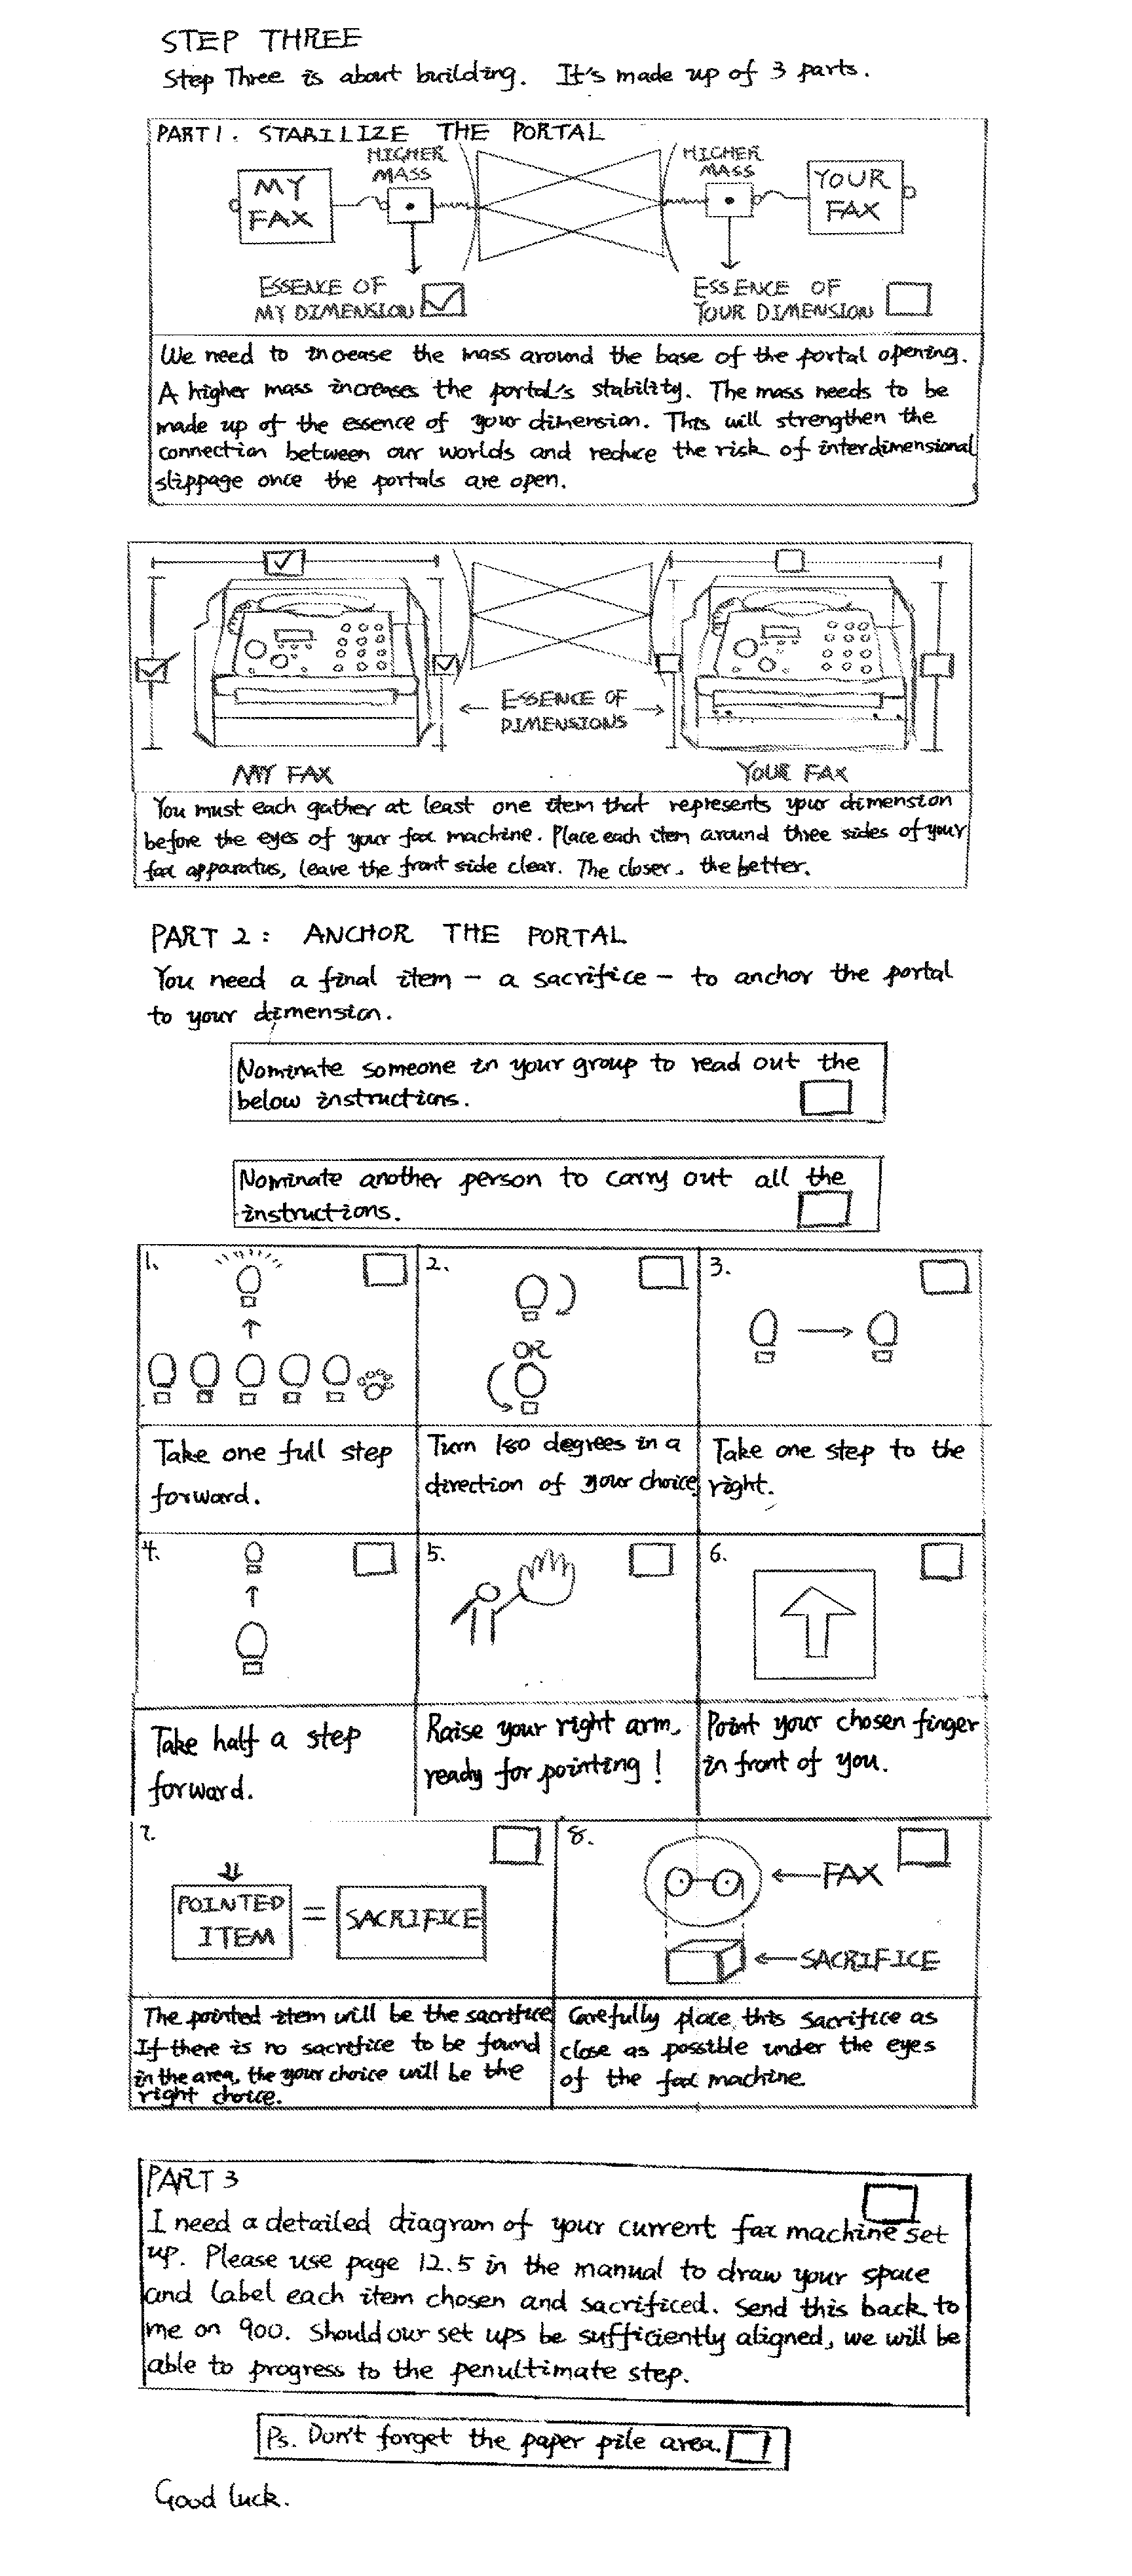 STEP THREE
Step Three is about building. It's made up of 3 parts.
PART 1. STABILIZE THE PORTAL
MY
FAX
HIGHER
MASS
HIGHER
MASS
YOUR
FAX
ESSENCE OF
MY DIMENSION
ESSENCE OF
YOUR DIMENSION
We need to increase the mass around the base of the portal opening.
A higher mass increases the portal's stability. The mass needs to be
made up of the essence of your dimension. This will strengthen the
connection between our worlds and reduce the risk of interdimensional
slippage once the portals are open.
ESSENCE OF
DIMENSIONS
MY FAX
YOUR FAX
You must each gather at least one item that represents your dimension
before the eyes of your fax machine. Place each item around three sides of your
fax apparatus, leave the front side clear. The closer, the better.
PART 2: ANCHOR THE PORTAL
You need a final item - a sacrifice - to anchor the portal
to your dimension.
Nominate someone in your group to read out the
below instructions.
Nominate another person to carry out all the
instructions.
1.
Take one full step
forward.
2.
OR
Turn 180 degrees in a
direction of your choice
3.
Take one step to the
right.
4.
Take half a step
forward.
5.
Raise your right arm,
ready for pointing!
6.
Point your chosen finger
in front of you.
7.
POINTED
ITEM
=
SACRIFICE
The pointed item will be the sacrifice
If there is no sacrifice to be found
in the area, the your choice will be the
right choice.
8.
FAX
SACRIFICE
Carefully place this sacrifice as
close as possible under the eyes
of the fax machine
PART 3
I need a detailed diagram of your current fax machine set
up. Please use page 12.5 in the manual to draw your space
and label each item chosen and sacrificed. Send this back to
me on 900. Should our set ups be sufficiently aligned, we will be
able to progress to the penultimate step.
Ps. Don't forget the paper pile area.
Good luck.